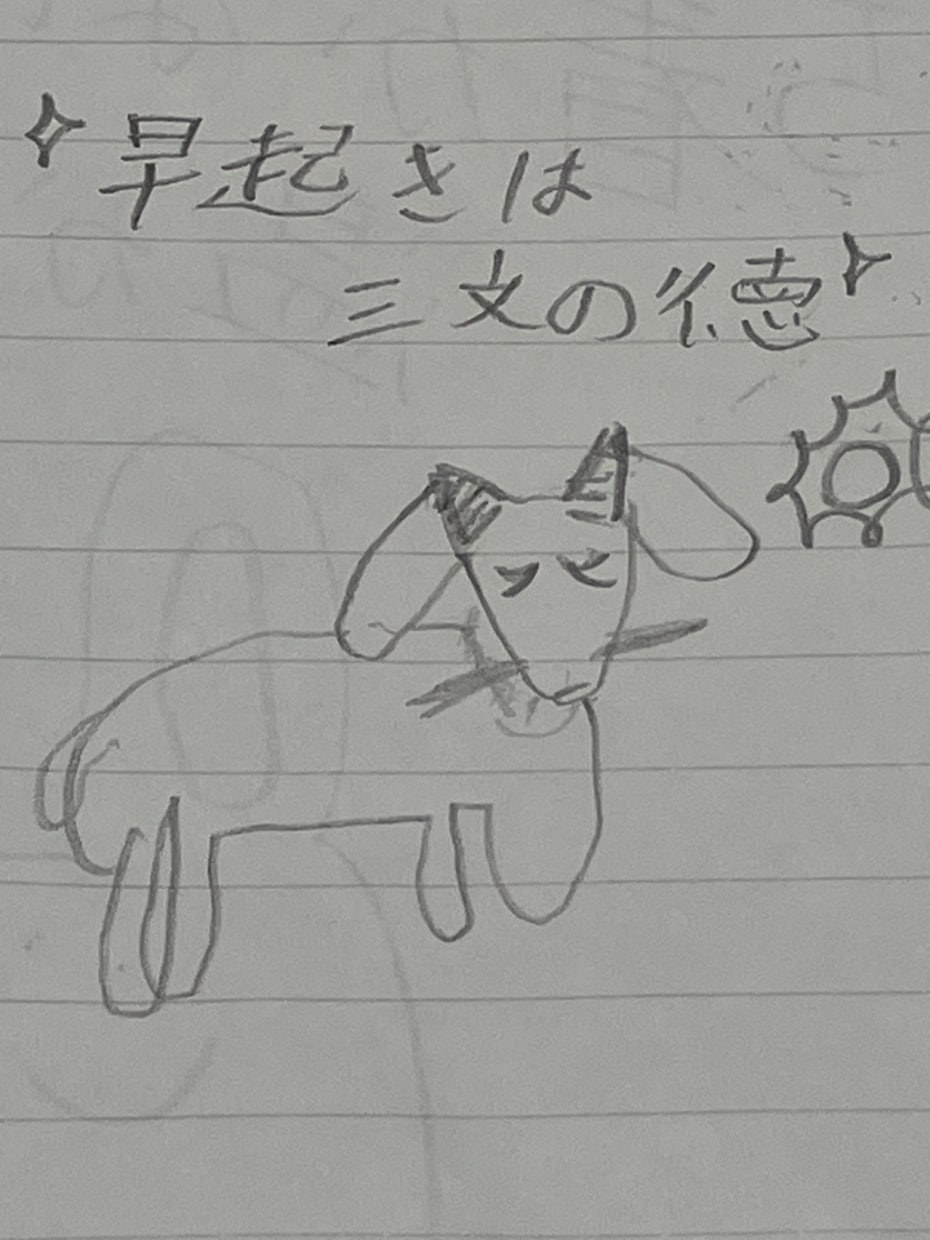 早起きは
三文の徳